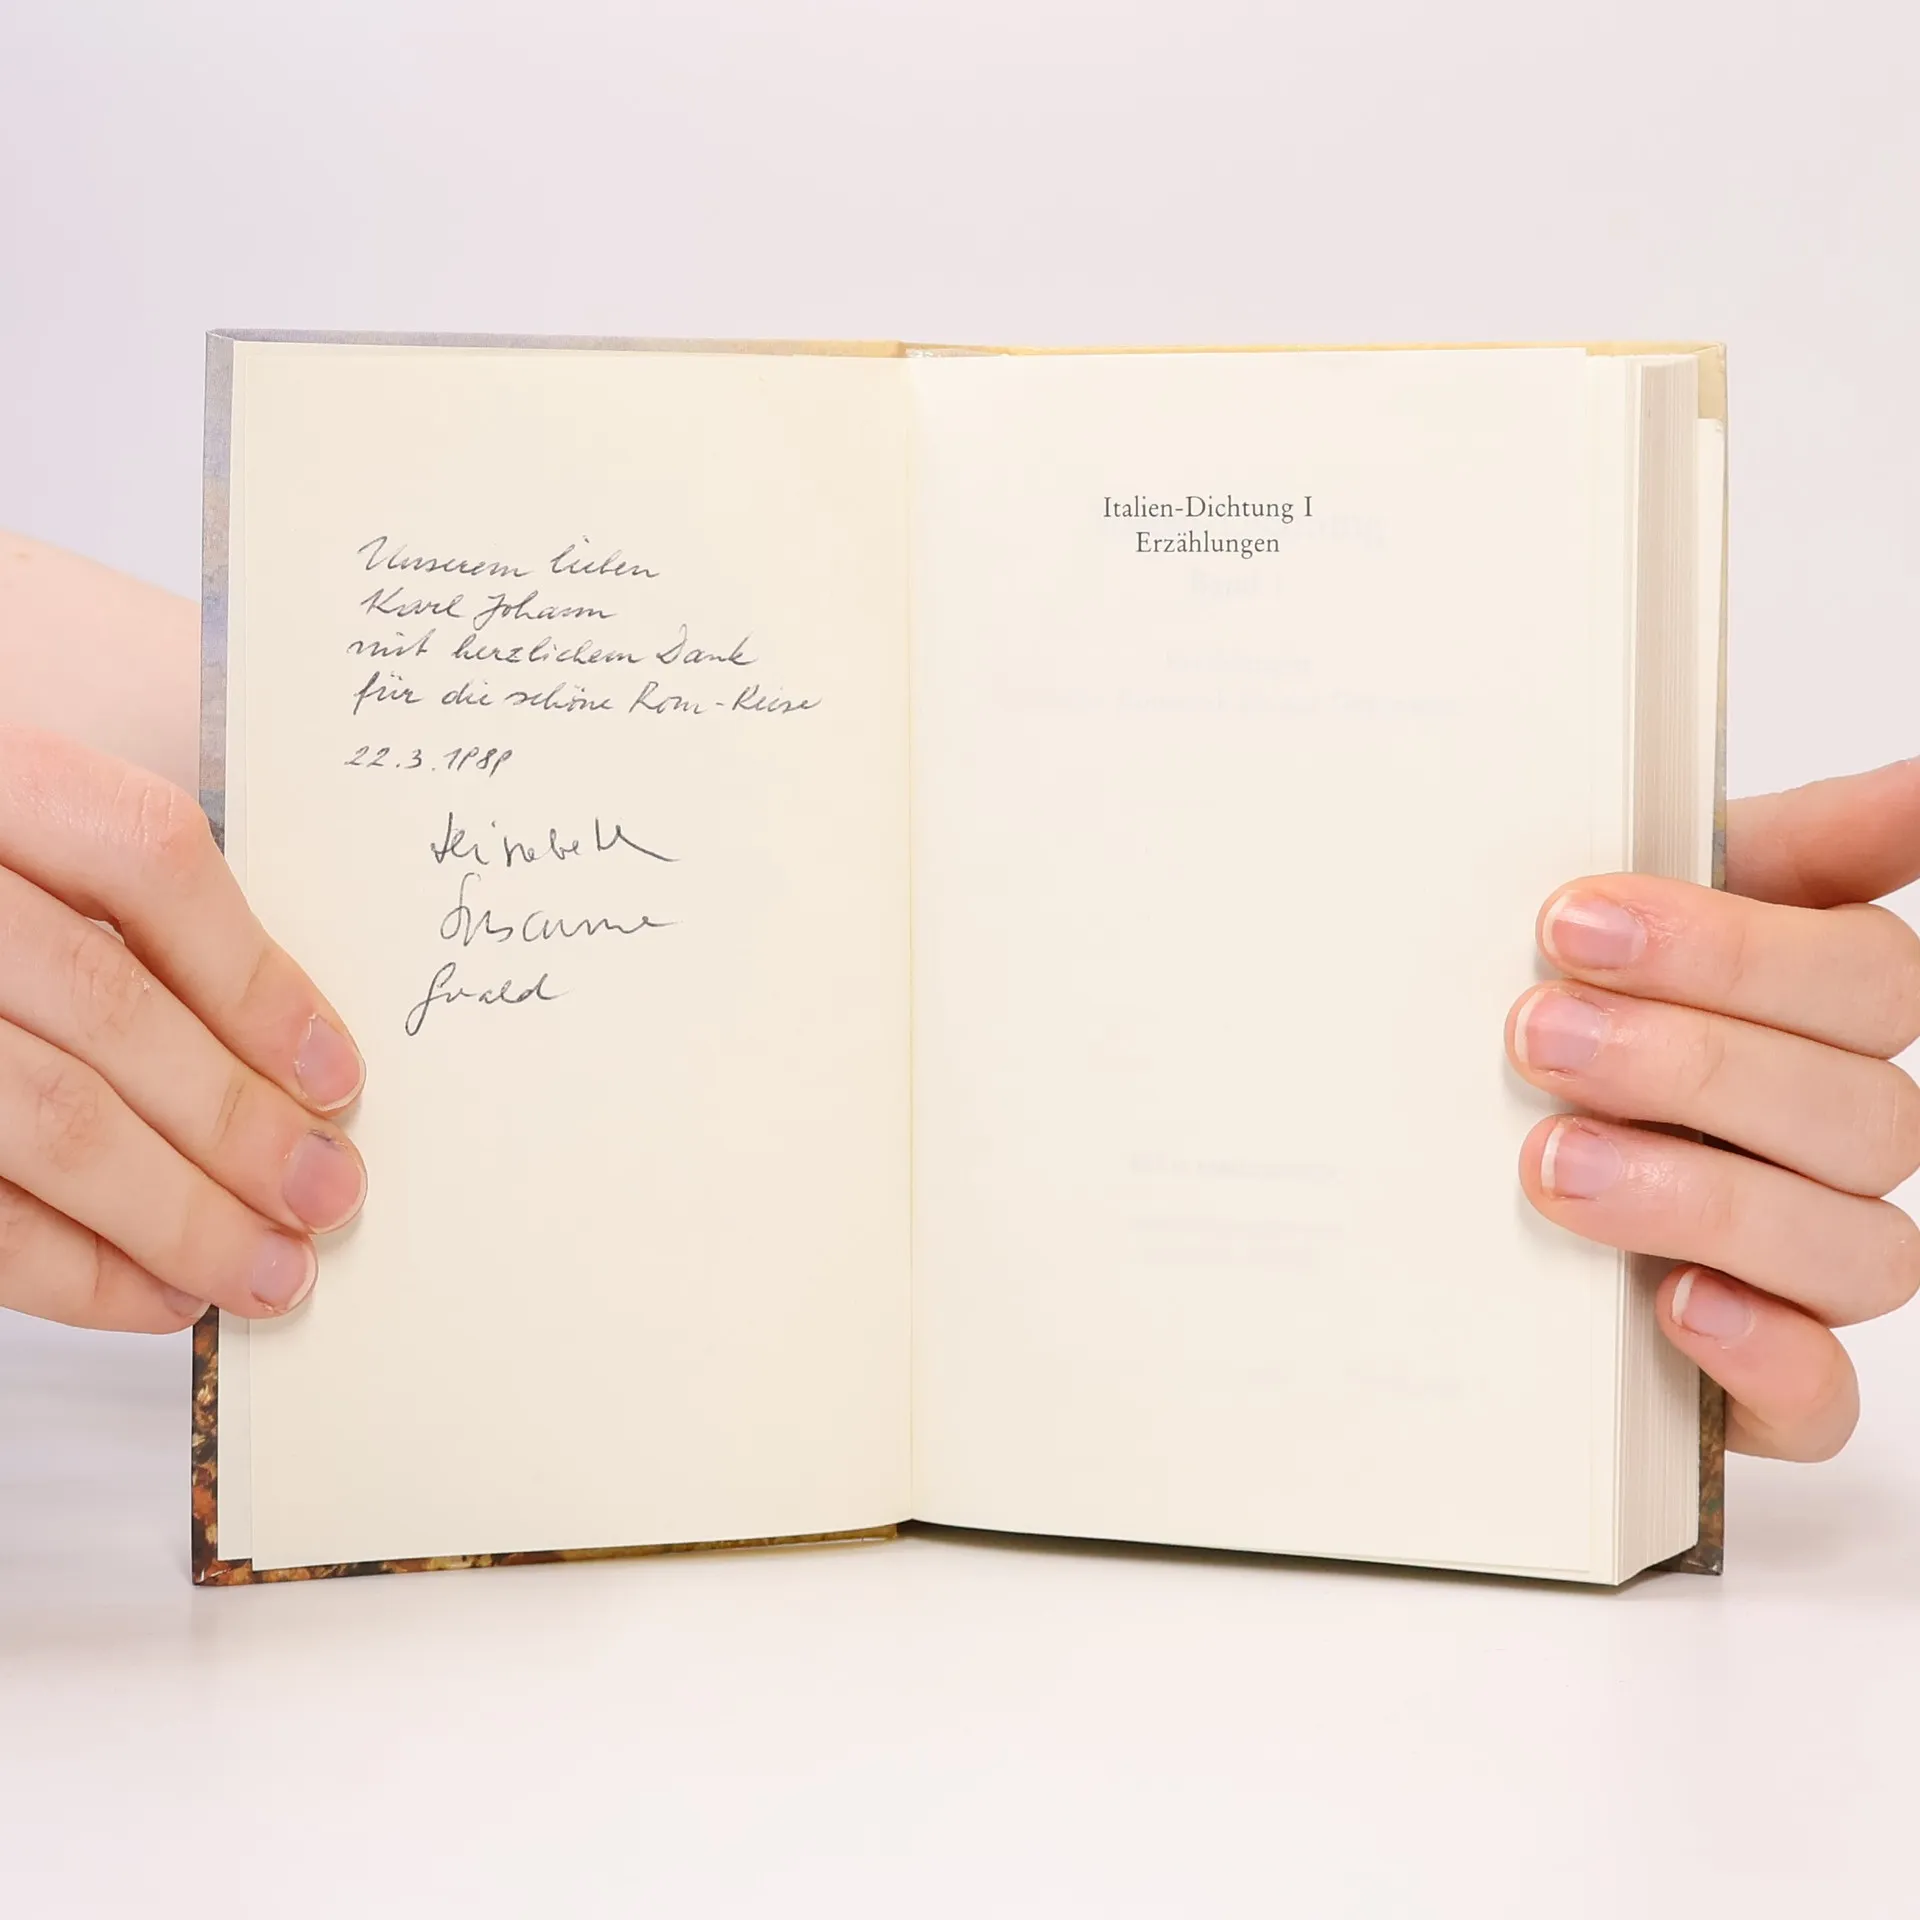 Unserem lieben
Karl Johann
mit herzlichem Dank
für die schöne Rom-Reise
22.3.1989
Elisabeth
Susanne
Ewald
Italien-Dichtung I
Erzählungen